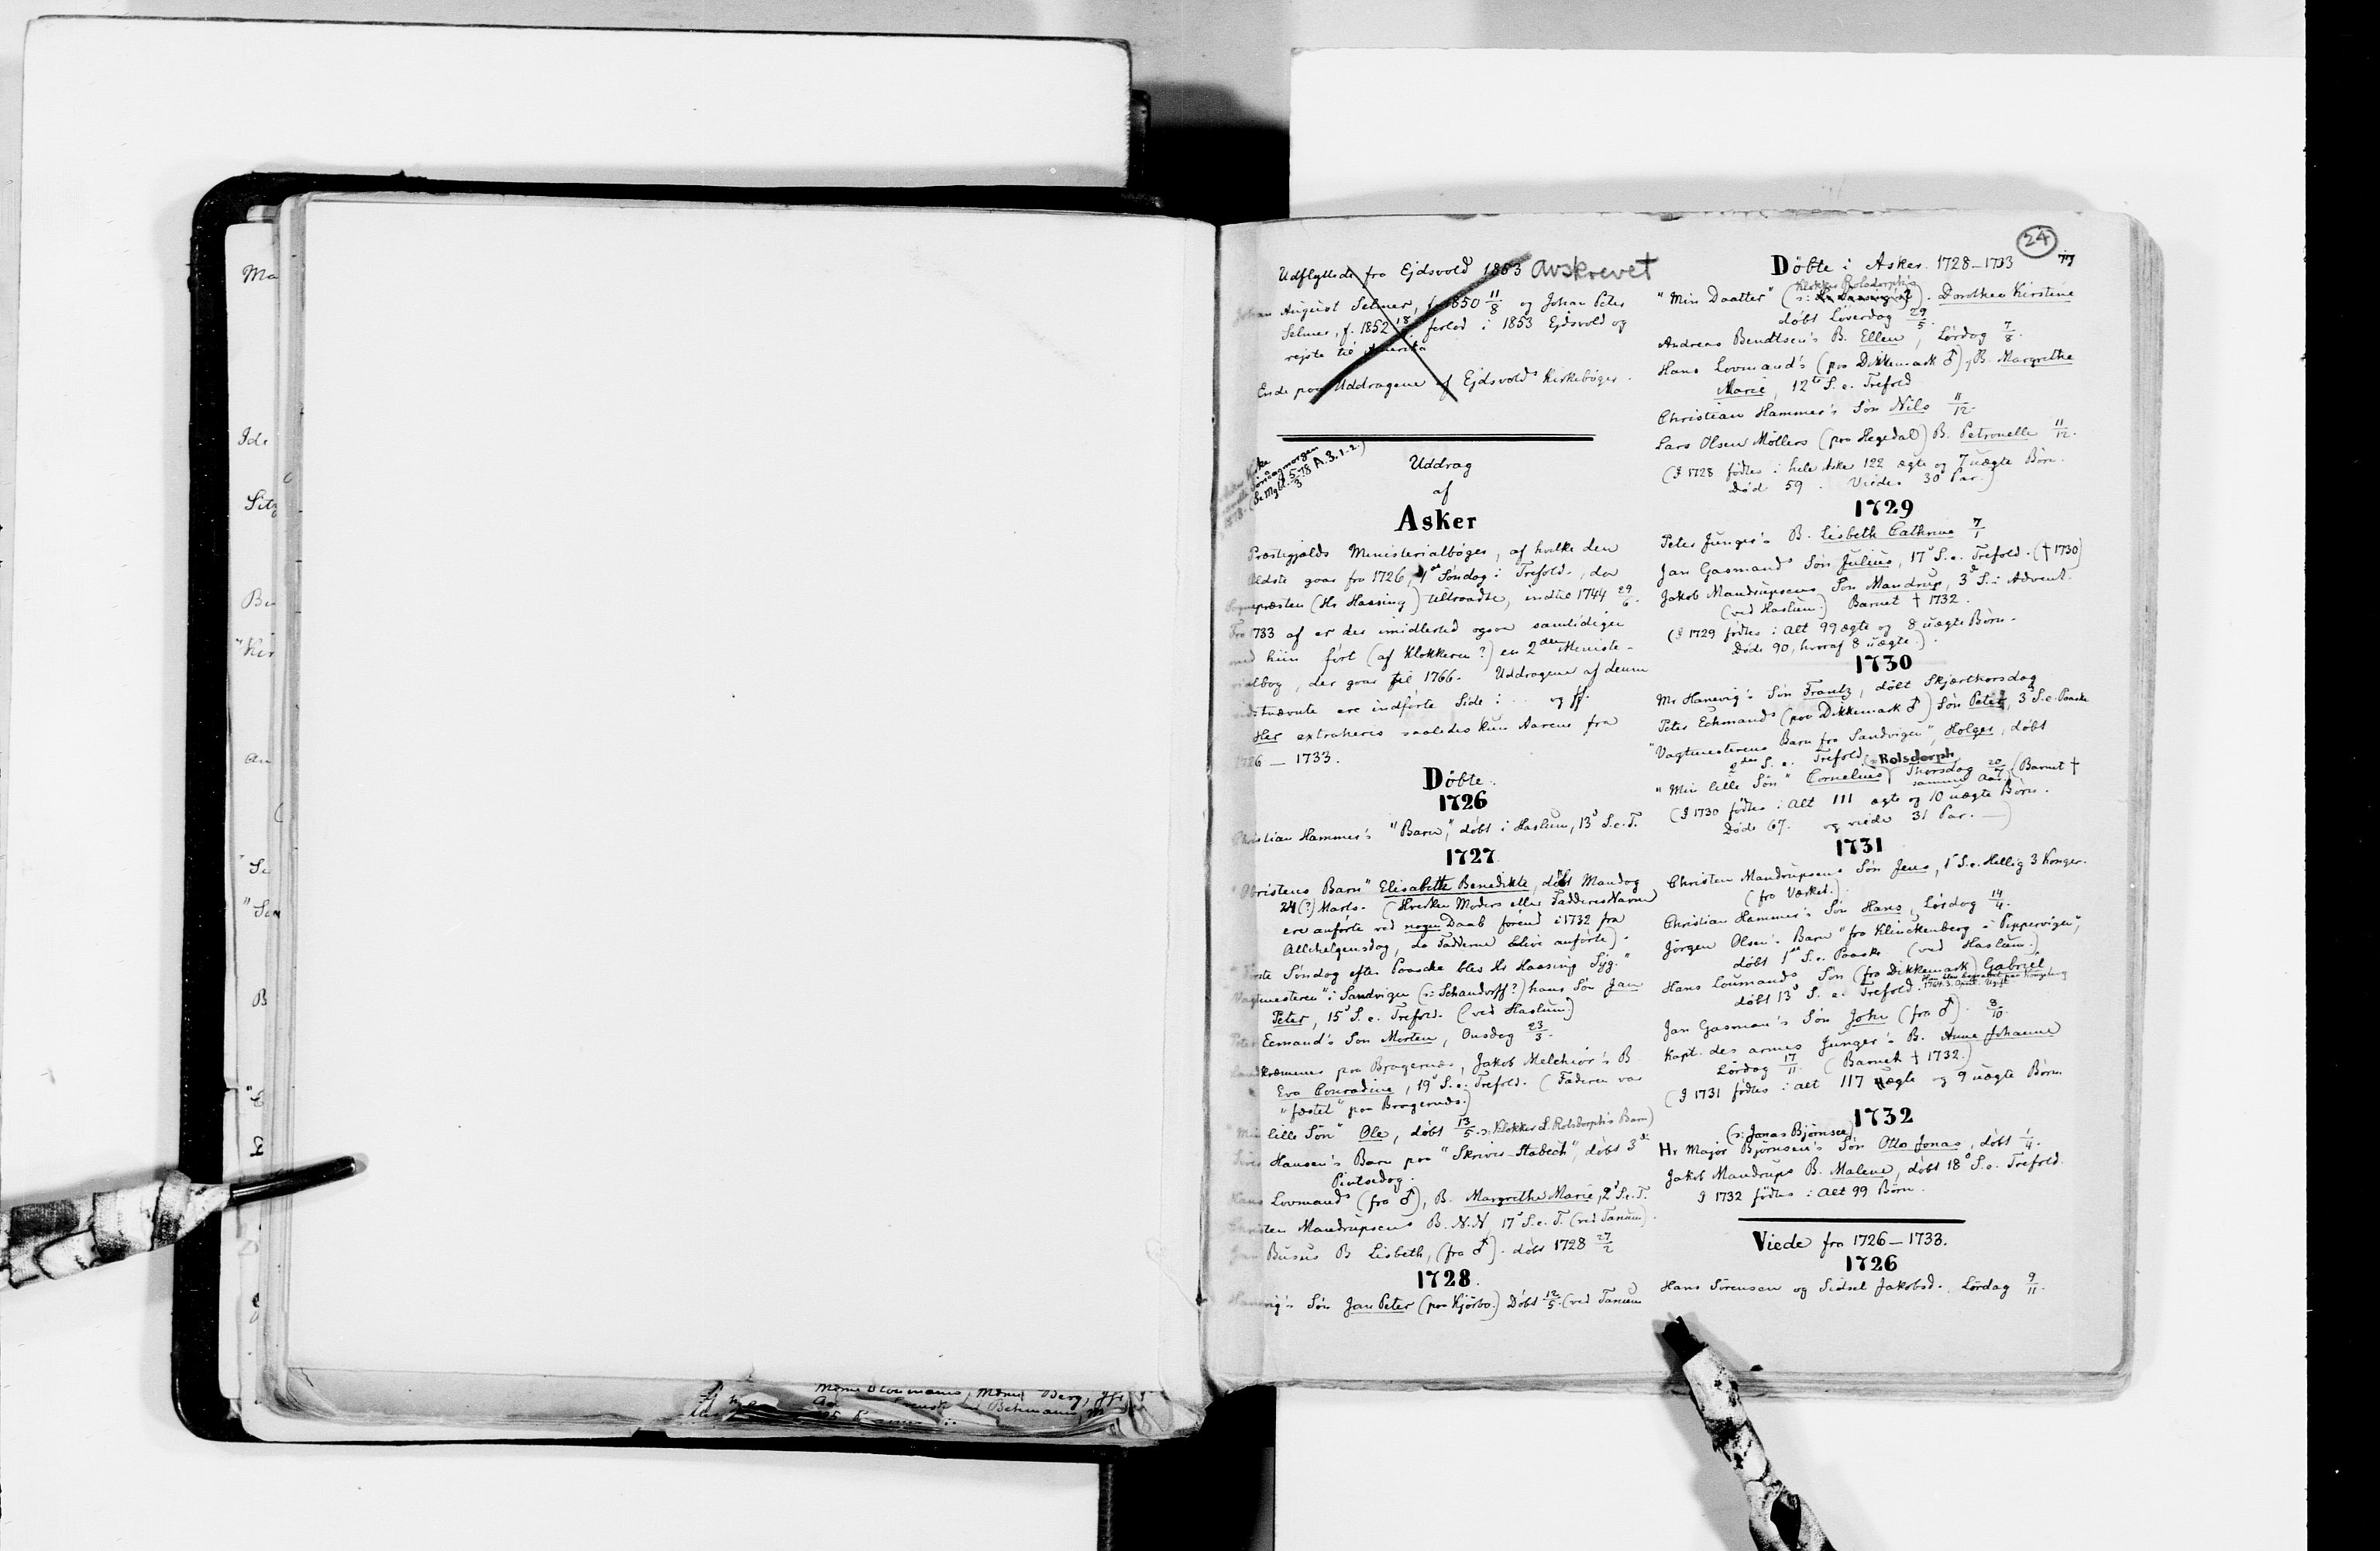 Udflyttede fra Ejdsvold 1853 avskrevet
Johan August Selmer, f. 1850 11/8 og Johan Peter
Selmer, f. 1852 18/ forlod i 1853 Ejdsvold og
rejste til Amerika
Ende paa Uddragene af Ejdsvolds Kirkebøger.
Søndagmorgen
1878. (Se Mgbl. 5/3 78 A. 3. 1-2.)
Uddrag
af
Asker
Præstegjælds Ministerialbøger, af hvilke den
Ældste gaar fra 1726, 1ste Søndag i Trefold., da
Sognepræsten (Hr Haasing) tiltraadte, indtil 1744 29/6.
Fra 1733 af er der imidlertid ogsaa samtidigen
med hiin ført (af Klokkeren?) en 2den Ministe-
rialbog, der gaar til 1766. Uddragene af denne
sidstnævnte ere indførte Side : .. og ff.
Her extraheres saaledes kun Aarene fra
1726 — 1733.
Døbte.
1726
Christian Hammer's "Barn," døbt i Haslum, 13d S. e. T.
1727
"Obristens Barn" Elisabeth Benedikte, døbt Mandag
24(?) Marts. (Hverken Moders eller Fadderes Navne
ere anførte ved nogen Daab førend i 1732 fra
Allehelgensdag, da Fadderne blive anførte).
"Første Søndag efter Paaske blev Hr Haasing Syg."
"Vagtmesteren" i Sandvigen (ɔ: Schandorff?) hans Søn Jan
Peter, 15d S. e. Trefold. (ved Haslum)
Peter Eemand's Søn Morten, Onsdag 23/3.
Landkræmmer paa Bragernæs, Jakob Melchior's B.
Eva Conradine, 19d S. e. Trefold. (Faderen var
"fæstet" paa Bragernæs.)
"Min lille Søn" Ole, døbt 13/5. ɔ: Klokker L. Rolsdorph's Barn)
Hansen's Barn paa "Skrivis-Stabech", døbt 3die
Pintsedag.
Hans Lovmands (fra ♂), B. Margrethe Marie, 2d S. e. T.
Christen Mandrupsens B. N. N. 17d S. e. T. (ved Tanum).
Jan Busus B. Lisbeth, (fra ♂). døbt 1728 27/2
1728.
Hanevig's Søn Jan Peter (paa Kjørbo.) Døbt 12/5. (ved Tanum
24
77
Døbte i Asker. 1728—1733
Klokker Rolsdorph's
"Min Daatter" (ɔ: Hr Haasing's?). Dorothea Kirstine
døbt Løverdag 29/5.
Andreas Bendtsen's B. Ellen, Lørdag 7/8.
Hans Lovmand's (paa Dikkemark ♂), B. Margrethe
Marie, 12te S. e. Trefold
Christian Hammer's Søn Nils 11/12.
Lars Olsen Møllers (paa Hegedal) B. Petronelle 11/12.
(I 1728 fødtes i hele Asker 122 ægte og 7 uægte Børn.
Død 59. Viede 30 Par.)
1729
Peter Junger's B. Lisbeth Cathrine 7/1
Jan Gasmands Søn Julius, 17d S. e. Trefold. († 1730)
Jakob Mandrupsens Søn Mandrup, 3d S. i Advent.
(ved Haslum.) Barnet † 1732.
(I 1729 fødtes i alt 99 ægte og 8 uægte Børn.
Døde 90, hvoraf 8 uægte).
1730
Mr. Hanevig's Søn Frantz, døbt Skjærthorsdag
Peter Echmands (paa Dikkemark ♂) Søn Peter, 3d S. e. Paaske
"Vagtmesterens Barn fra Sandvigen", Holger, døbt
S. e. Trefold.
"Min lille Søn" Cornelius (ɔ: Rolsdorph Thorsdag 20/7 (Barnet †
samme Aar.)
(I 1730 fødtes i alt 111 ægte og 10 uægte Børn.
Døde 67. og viede 31 Par. —)
1731
Christen Mandrupsens Søn Jens, 1d S. e. Hellig 3 Konger.
(fra Værket.)
Christian Hammer's Søn Hans, Lørdag 14/4.
Jørgen Olsen's Barn "fra Klinckenberg i Pippervigen",
døbt 1ste S. e. Paaske (ved Haslum.)
Hans Loumands Søn (fra Dikkemark) Gabriel
døbt 13d S. e. Trefold.
Jan Gasman's Søn John (fra ♂). 8/10.
Kapt. des armes Junger's B. Anne Johanne
Lørdag 17/11. (Barnet † 1732.)
(I 1731 fødtes i alt 117 ægte og 9 uægte Børn
1732
(ɔ: Jonas Bjørnsen)
Hr Major Bjørnsen's Søn Otto Jonas, døbt 1/4.
Jakob Mandrups B. Malene, døbt 18d S. e. Trefold.
I 1732 fødtes i alt 99 Børn.
Viede fra 1726—1733.
1726
Hans Sørensen og Sidsel Jakobsd., Lørdag 9/11.